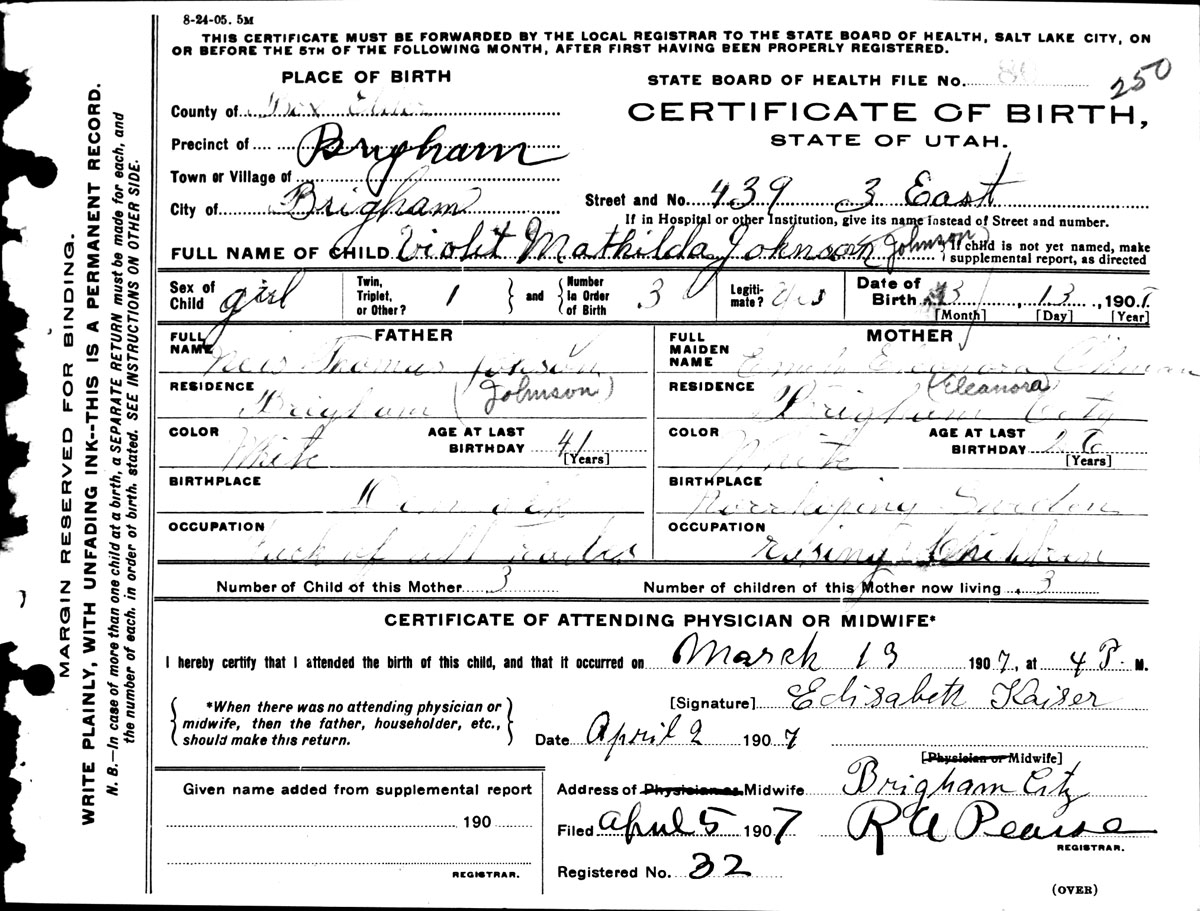 8-24-05. 5M
THIS CERTIFICATE MUST BE FORWARDED BY THE LOCAL REGISTRAR TO THE STATE BOARD OF HEALTH, SALT LAKE CITY, ON
OR BEFORE THE 5TH OF THE FOLLOWING MONTH, AFTER FIRST HAVING BEEN PROPERLY REGISTERED.
MARGIN RESERVED FOR BINDING.
WRITE PLAINLY, WITH UNFADING INK--THIS IS A PERMANENT RECORD.
N. B.—In case of more than one child at a birth, a SEPARATE RETURN must be made for each, and
the number of each, in order of birth, stated. SEE INSTRUCTIONS ON OTHER SIDE.
PLACE OF BIRTH
STATE BOARD OF HEALTH FILE No.
250
County of Box Elder
CERTIFICATE OF BIRTH,
STATE OF UTAH.
Precinct of Brigham
Town or Village of
City of Brigham
Street and No. 439 3 East
If in Hospital or other Institution, give its name instead of Street and number.
FULL NAME OF CHILD Violet Mathilda Johnson (Johnson) If child is not yet named, make
supplemental report, as directed
Sex of Child girl
Twin, Triplet, or Other? 1 and Number in Order of Birth 3
Legitimate? Yes
Date of Birth 3, 13, 1907
[Month] [Day] [Year]
FATHER
FULL NAME Thomas
(Johnson)
RESIDENCE Brigham
COLOR White
AGE AT LAST BIRTHDAY 41
[Years]
BIRTHPLACE
OCCUPATION of all trades
MOTHER
FULL MAIDEN NAME
(Eleanora)
RESIDENCE Brigham City
COLOR White
AGE AT LAST BIRTHDAY 26
[Years]
BIRTHPLACE Norrkoping
OCCUPATION
Number of Child of this Mother 3
Number of children of this Mother now living 3
CERTIFICATE OF ATTENDING PHYSICIAN OR MIDWIFE*
I hereby certify that I attended the birth of this child, and that it occurred on March 13 1907, at 4 P. M.
*When there was no attending physician or
midwife, then the father, householder, etc.,
should make this return.
[Signature] Elisabeth Kaiser
Date April 2 1907
[Physician or Midwife]
Given name added from supplemental report
190
REGISTRAR.
Address of Physician or Midwife Brigham City
Filed April 5 1907 R A Pearse
REGISTRAR.
Registered No. 32
(OVER)